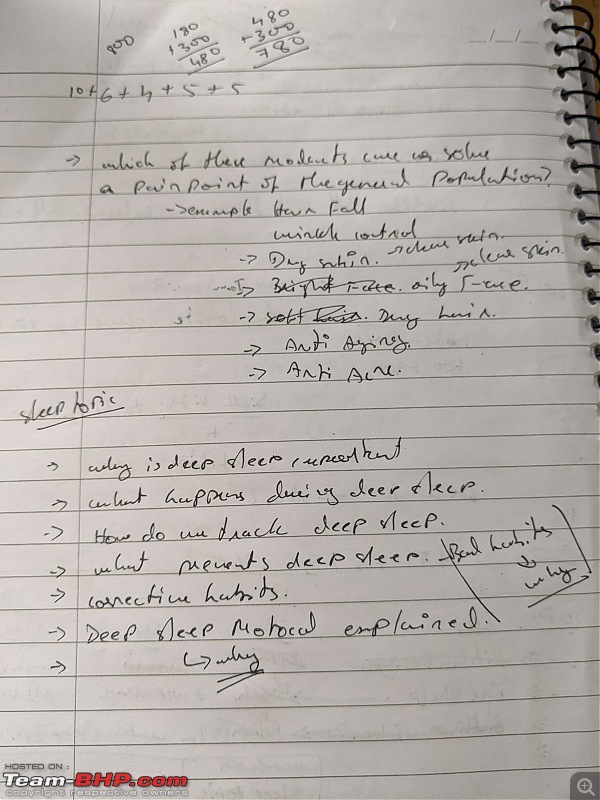 900
180
+300
480
480
+300
780
_/_/_
10+6+4+5+5
→ which of these products can we solve
a pain point of the general population?
→ example Hair Fall
control
→ Dry skin. → clear skin.
→ Bright Face. oily Face. → clear skin.
→ soft Hair. Dry hair.
→ Anti Aging.
→ Anti Acne.
sleep topic
→ why is deep sleep important
→ what happens during deep sleep.
→ How do we track deep sleep.
→ what prevents deep sleep. Bad habits
→ why
→ corrective habits.
→ Deep sleep Protocol explained.
↳ why
→
HOSTED ON :
Team-BHP.com
copyright respective owners